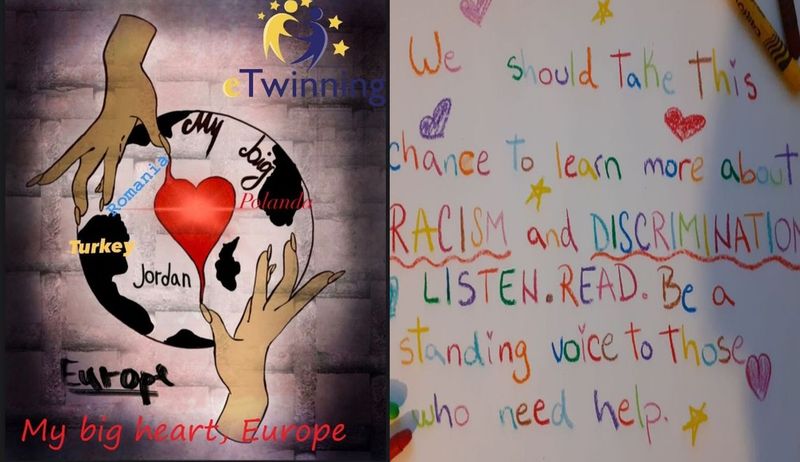 eTwinning
My big
Romania
Polanda
Turkey
Jordan
Europe
My big heart, Europe
We should Take This
chance to learn more about
RACISM and DISCRIMINATION
LISTEN. READ. Be a
standing voice to those
who need help.